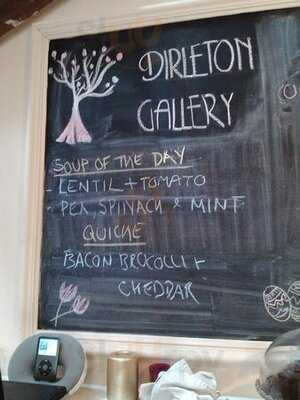 DIRLETON
GALLERY
SOUP OF THE DAY
- LENTIL + TOMATO
- PEA, SPINACH & MINT
QUICHE
- BACON BROCOLLI +
CHEDDAR